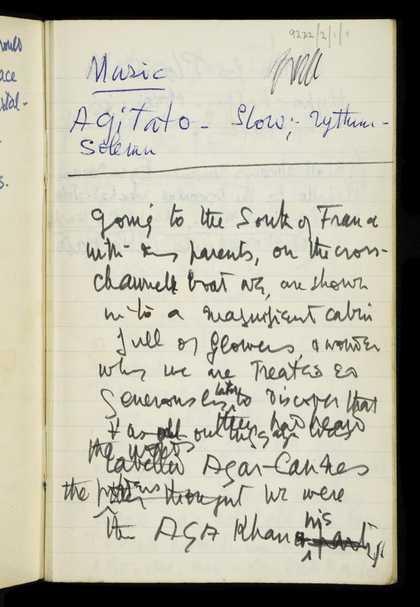 9222/2/1/1
Music
Agitato - Slow; - rythum -
Solemn
going to the South of France
with my parents, on the cross-
channell boat we, are shown
in to a magnificent cabin
full of flowers, & wonder
why we are treated so
generously later to discover that
as all our luggage was
they had heard
labelled Agar-Cannes
the
the thought we were
the AGA Khan & his party